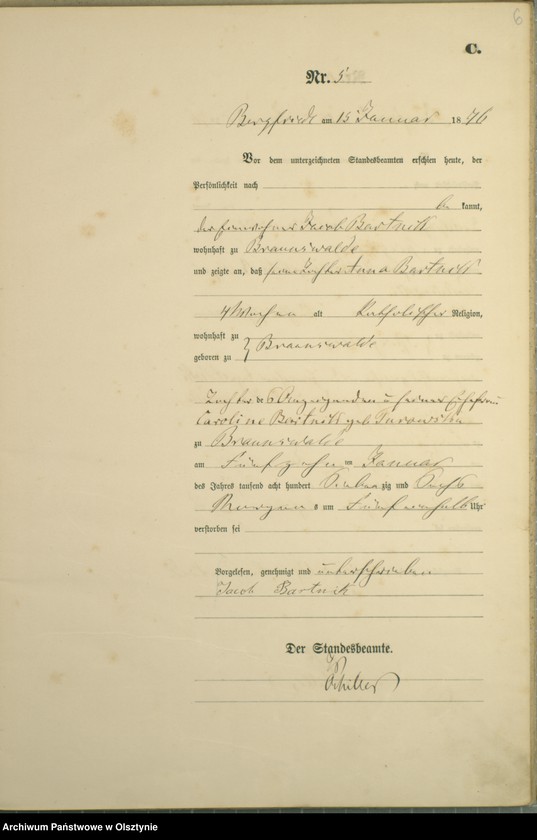 6
C.
Nr. 5
Bergfriede am 15 Januar 1876
Vor dem unterzeichneten Standesbeamten erschien heute, der
Persönlichkeit nach
be kannt,
der Jacob Bartnik
wohnhaft zu Braunswalde
und zeigte an, daß seine Tochter Anna Bartnik
4 Wochen alt Katholischer Religion,
wohnhaft zu
geboren zu } Braunswalde
Tochter des Anzeigenden u seiner Ehefrau
Caroline Bartnik geb
zu Braunswalde
am Fünfzehn ten Januar
des Jahres tausend acht hundert Sieben zig und Sechs
Morgens um Fünf einhalb Uhr
verstorben sei
Vorgelesen, genehmigt und unterschrieben
Jacob Bartnik
Der Standesbeamte.
Archiwum Państwowe w Olsztynie